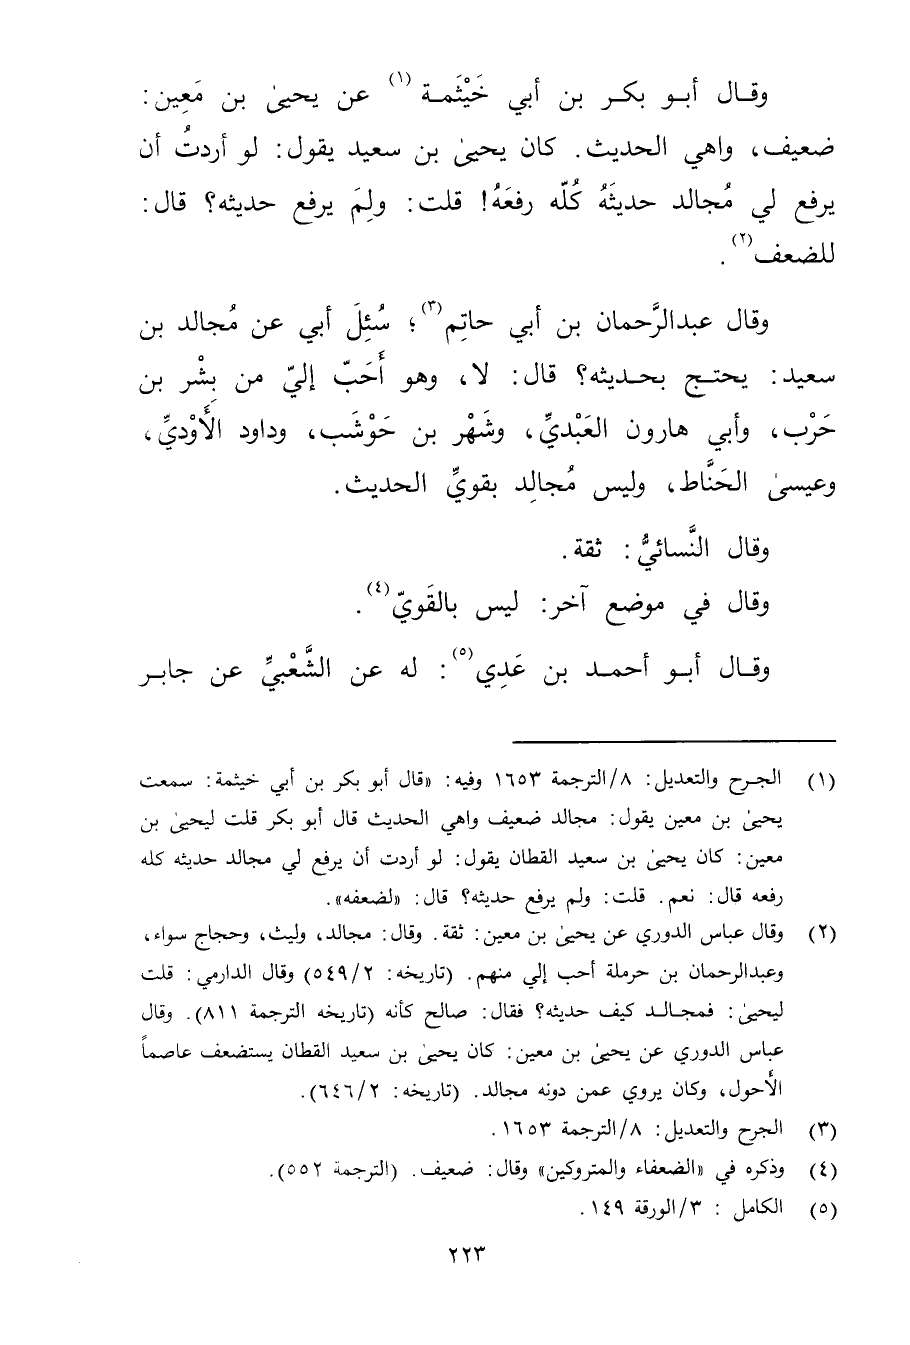 وقال أبو بكر بن أبي خَيْثَمة (١) عن يحيىٰ بن مَعِين:
ضعيف، واهي الحديث. كان يحيىٰ بن سعيد يقول: لو أردتُ أن
يرفع لي مُجالد حديثَهُ كُلّه رفعَهُ! قلت: ولِمَ يرفع حديثه؟ قال:
للضعف(٢).
وقال عبدالرَّحمان بن أبي حاتِم(٣)؛ سُئِلَ أبي عن مُجالد بن
سعيد: يحتج بحديثه؟ قال: لا، وهو أَحَبّ إليّ من بِشْر بن
حَرْب، وأبي هارون العَبْديِّ، وشَهْر بن حَوْشَب، وداود الأَوْديِّ،
وعيسىٰ الحَنَّاط، وليس مُجالِد بقويِّ الحديث.
وقال النَّسائيُّ: ثقة.
وقال في موضع آخر: ليس بالقَويّ(٤).
وقال أبو أحمد بن عَدِي(٥): له عن الشَّعْبيِّ عن جابر
(١) الجرح والتعديل: ٨/الترجمة ١٦٥٣ وفيه: «قال أبو بكر بن أبي خيثمة: سمعت
يحيىٰ بن معين يقول: مجالد ضعيف واهي الحديث قال أبو بكر قلت ليحيىٰ بن
معين: كان يحيىٰ بن سعيد القطان يقول: لو أردت أن يرفع لي مجالد حديثه كله
رفعه قال: نعم. قلت: ولم يرفع حديثه؟ قال: «لضعفه».
(٢) وقال عباس الدوري عن يحيىٰ بن معين: ثقة. وقال: مجالد، وليث، وحجاج سواء،
وعبدالرحمان بن حرملة أحب إلي منهم. (تاريخه: ٥٤٩/٢) وقال الدارمي: قلت
ليحيىٰ: فمجالد كيف حديثه؟ فقال: صالح كأنه (تاريخه الترجمة ٨١١). وقال
عباس الدوري عن يحيىٰ بن معين: كان يحيىٰ بن سعيد القطان يستضعف عاصماً
الأحول، وكان يروي عمن دونه مجالد. (تاريخه: ٦٤٦/٢).
(٣) الجرح والتعديل: ٨/الترجمة ١٦٥٣.
(٤) وذكره في «الضعفاء والمتروكين» وقال: ضعيف. (الترجمة ٥٥٢).
(٥) الكامل : ٣/الورقة ١٤٩.
٢٢٣